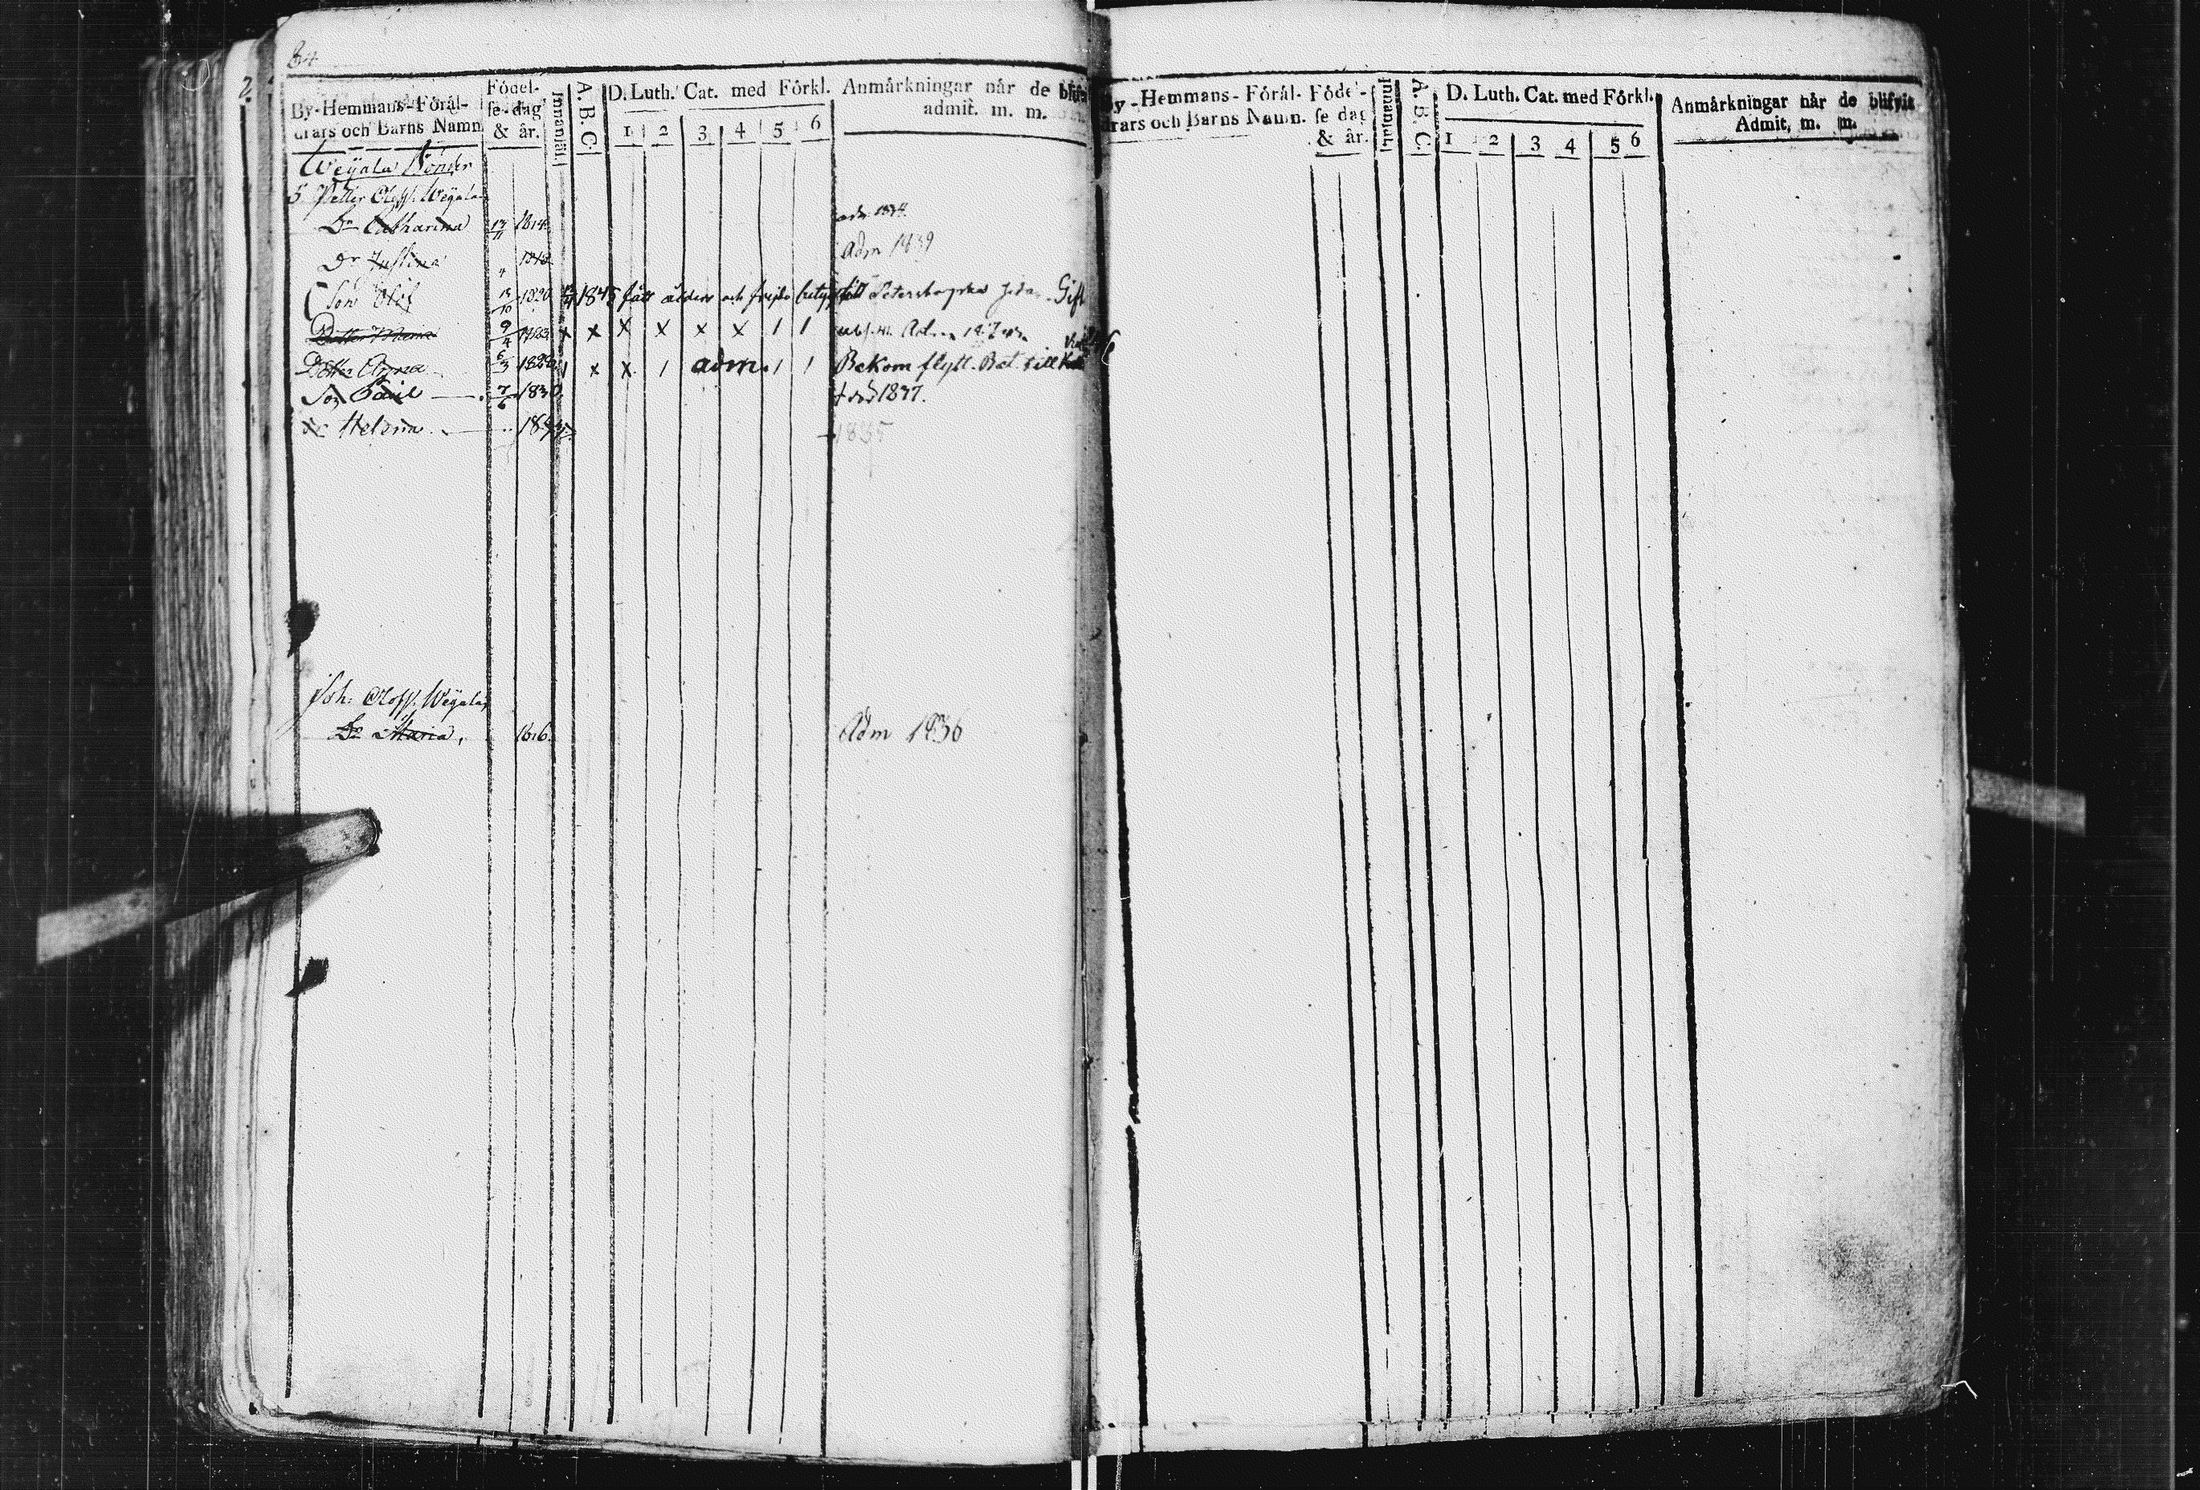 84
By-Hemmans-Förål-
drars och Barns Namn
Födel-
se-dag
& år.
Innanläs.
A. B. C.
D. Luth. Cat. med Förkl.
1 2 3 4 5 6
Anmärkningar når de blifvit
admit. m. m.
Weyala Bönder
5 Petter Olofss. Weyala
Dr Catharina 1814 adm 1834
Dr Justina 1818 Adm 1839
Son Olof 13/10 1820 1845 fått ålders och frejde betyg till Gift
Dotter Maria 9/4 1823 x x x x x x 1 1
Dotter Anna 6/3 1828 1 x x 1 adm. 1 1 Bekom flytt. Bet. till
Son Pavil 7/6 1830 död 1837.
Dr Helena 1835
Joh. Olofs. Weyala
Dr Maria, 1816. Adm 1836
By-Hemmans-Förål-
drars och Barns Namn.
Födel-
se dag
& år.
Innanläs.
A. B. C.
D. Luth. Cat. med Förkl.
1 2 3 4 5 6
Anmärkningar når de blifvit
Admit, m. m.